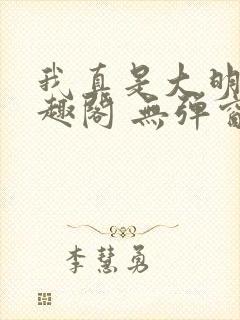 我真是大明
趣阁 無弹窗
李慧勇